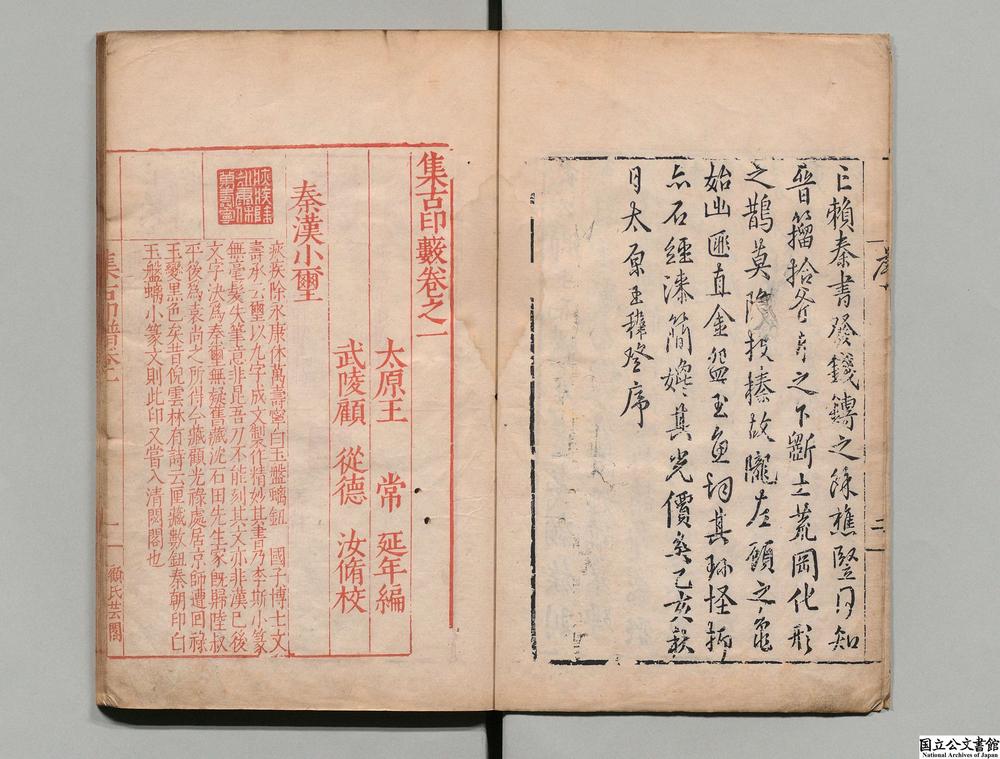 亡賴秦書發錢鏄之餘樵豎同知
晉籀拾斧斤之下斷土荒岡化形
之鵲莫隱投擽故隴左顧之龜
始出匪直金盌玉魚詞其珎怪抑
亦石經漆簡媲其光價矣乙亥秋
日太原王穉登序
二
集古印藪卷之一
太原王 常 延年編
武陵顧 從德 汝脩校
秦漢小璽
疢疾除永康休萬壽寧白玉盤螭鈕 國子博士文
壽承云璽以九字成文製作精妙其書乃李斯小篆
無毫髮失筆意非昆吾刀不能刻其文亦非漢已後
文字決爲秦璽無疑舊藏沈石田先生家旣歸陸叔
平後爲袁尚之所得今藏顧光祿處居京師遭回祿
玉變黑色矣昔倪雲林有詩云匣藏數鈕秦朝印白
玉盤螭小篆文則此印又當入清閟閣也
疢疾除
永康休
萬壽寧
一
顧氏芸閣
国立公文書館
National Archives of Japan